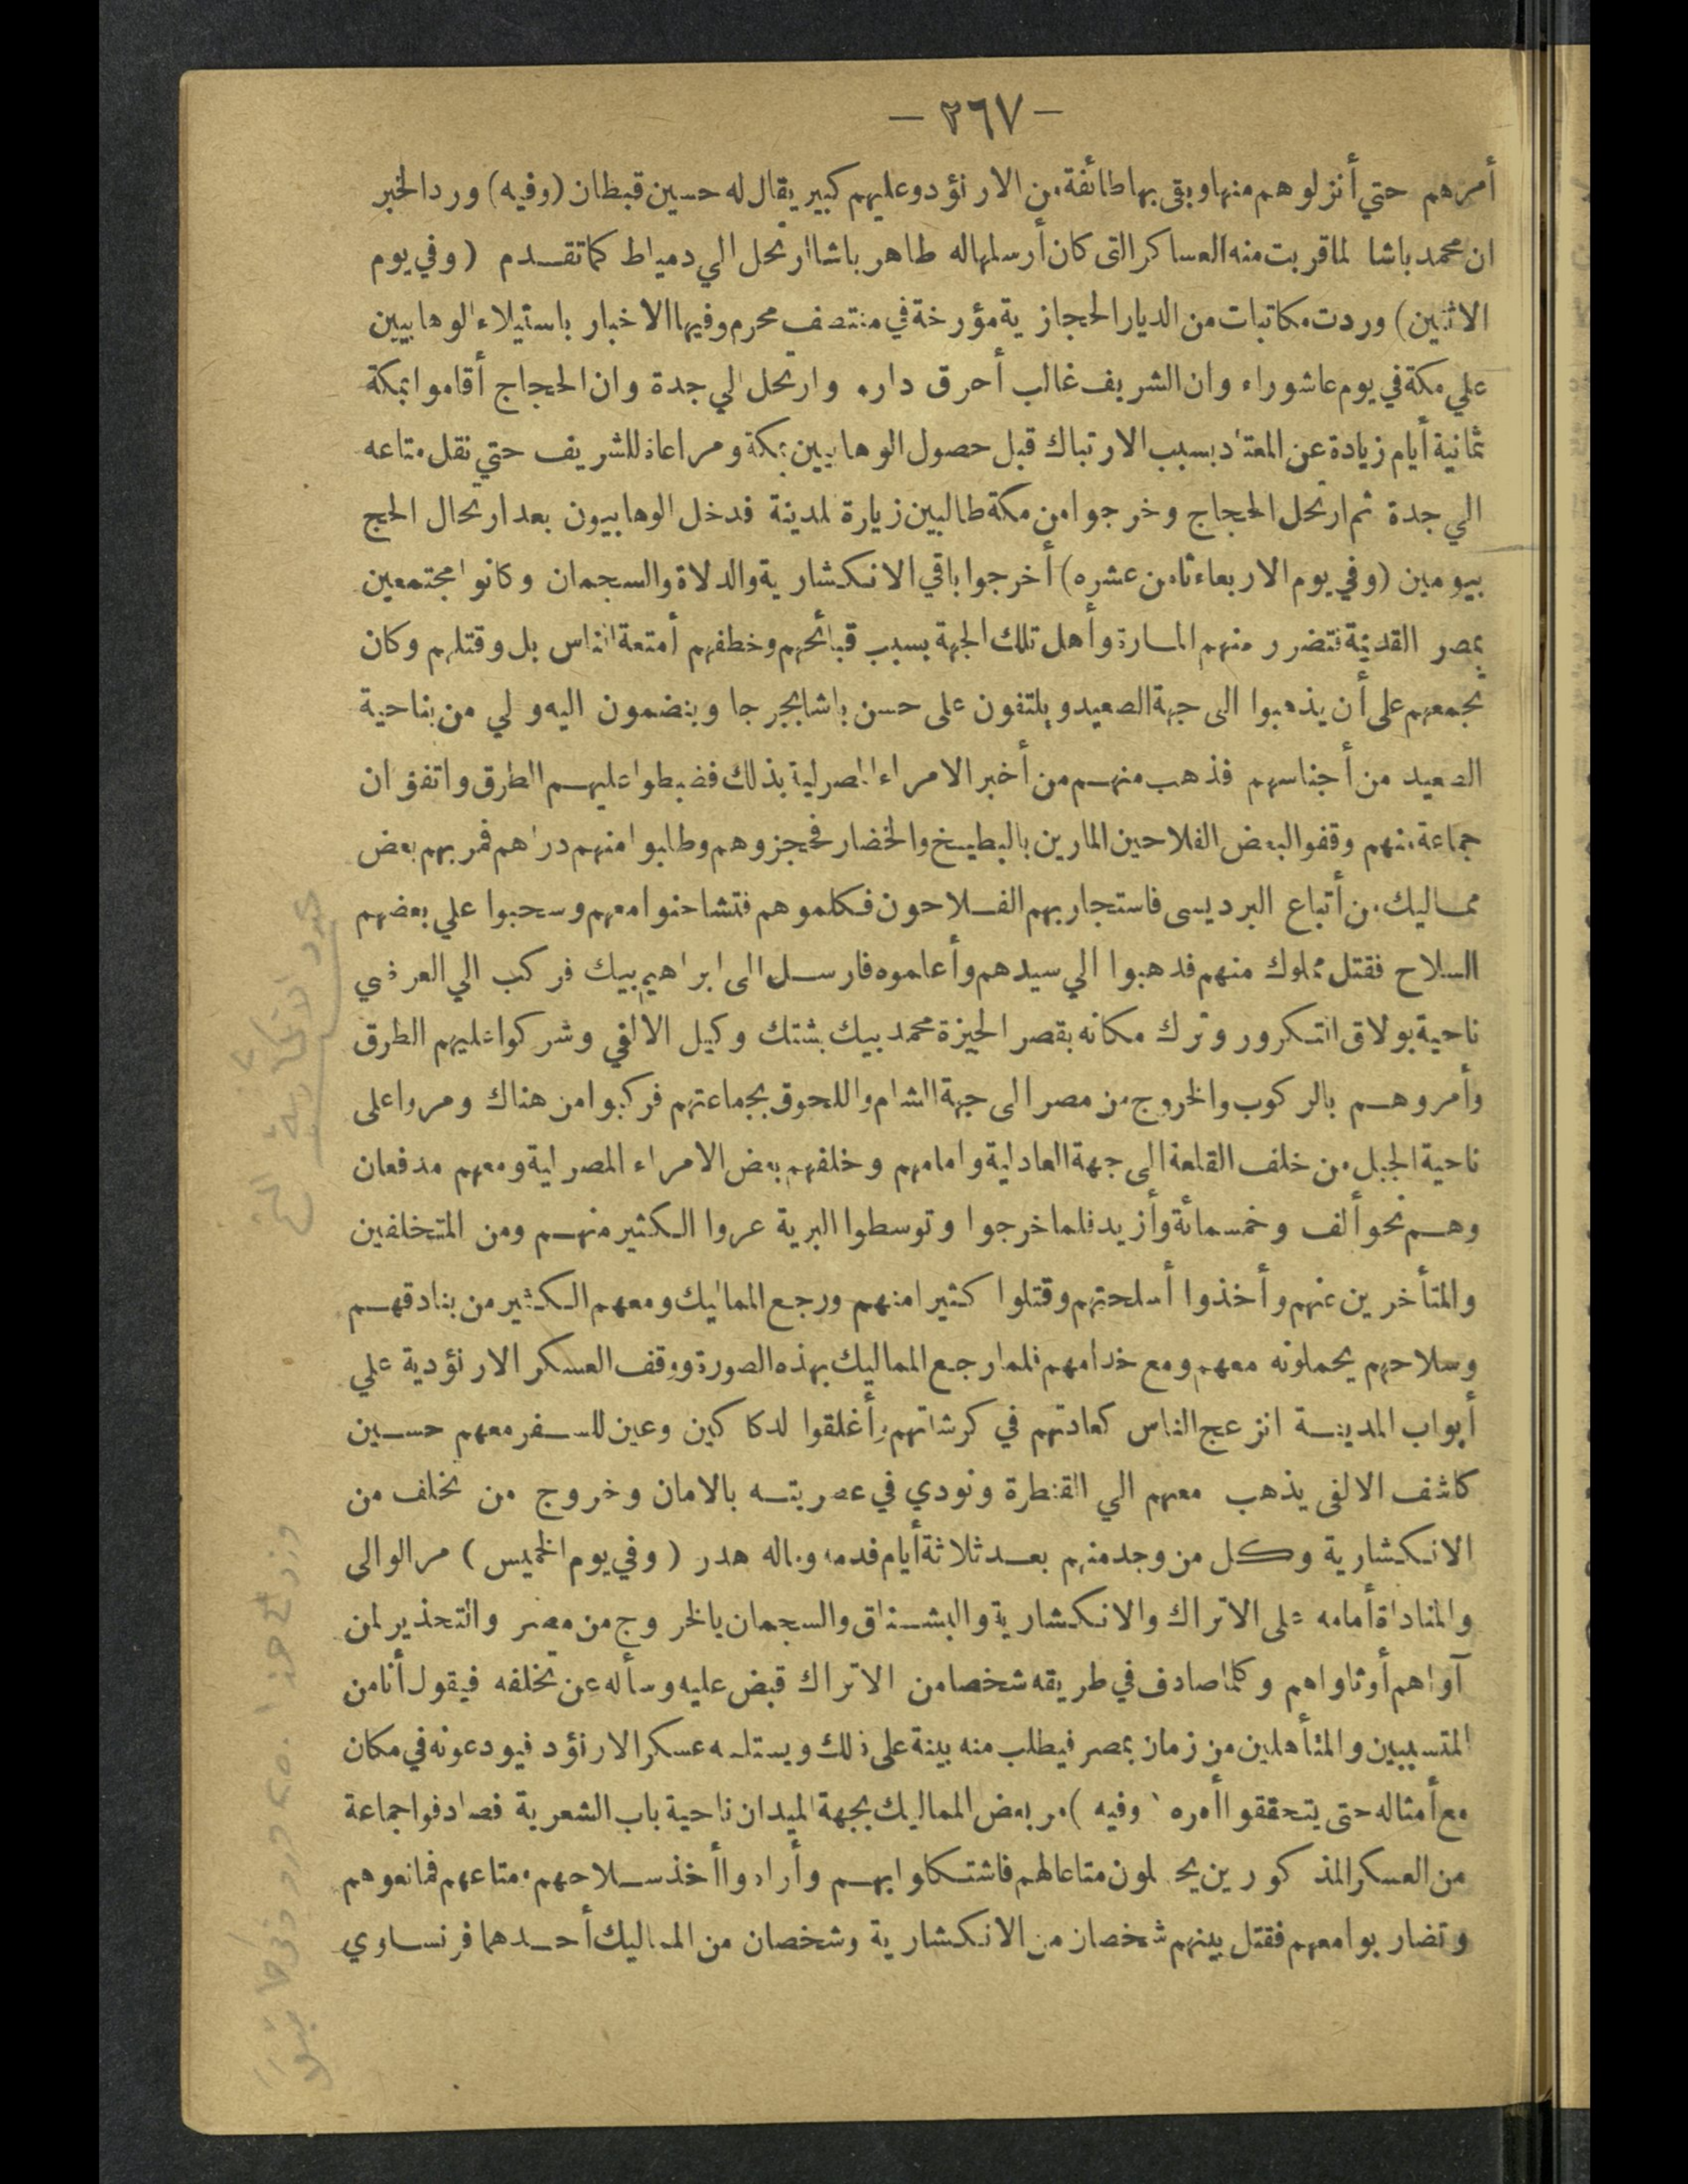 — ٢٦٧ —
أمرهم حتي أنزلوهم منها وبقى بها طائفة من الارنؤد وعليهم كبير يقال له حسين قبطان (وفيه) ورد الخبر
ان محمد باشا لما قربت منه العساكر التى كان أرسلها له طاهر باشا ارتحل الي دمياط كما تقدم (وفي يوم
الاثنين) وردت مكاتبات من الديار الحجازية مؤرخة في منتصف محرم وفيها الاخبار باستيلاء الوهابيين
علي مكة في يوم عاشوراء وان الشريف غالب أحرق داره وارتحل الي جدة وان الحجاج أقاموا بمكة
ثمانية أيام زيادة عن المعتاد بسبب الارتباك قبل حصول الوهابيين بمكة ومراعاة للشريف حتي نقل متاعه
الي جدة ثم ارتحل الحجاج وخرجوا من مكة طالبين زيارة المدينة فدخل الوهابيون بعد ارتحال الحج
بيومين (وفي يوم الاربعاء ثامن عشره) أخرجوا باقي الانكشارية والدلاة والسجمان وكانوا مجتمعين
بمصر القديمة فتضرر منهم المارة وأهل تلك الجهة بسبب قبائحهم وخطفهم أمتعة الناس بل وقتلهم وكان
تجمعهم على أن يذهبوا الى جهة الصعيد ويلتفون على حسن باشا بجرجا وينضمون اليه والي من بناحية
الصعيد من أجناسهم فذهب منهم من أخبر الامراء المصرلية بذلك فضبطوا عليهم الطرق واتفق ان
جماعة منهم وقفوا لبعض الفلاحين المارين بالبطيخ والخضار فحجزوهم وطلبوا منهم دراهم فمر بهم بعض
مماليك من أتباع البرديسى فاستجار بهم الفلاحون فكلموهم فتشاحنوا معهم وسحبوا علي بعضهم
السلاح فقتل مملوك منهم فذهبوا الي سيدهم وأعلموه فارسل الى ابراهيم بيك فركب الي العرضي
ناحية بولاق التكرور وترك مكانه بقصر الجيزة محمد بيك بشتك وكيل الالفي وشركوا عليهم الطرق
وأمروهم بالركوب والخروج من مصر الى جهة الشام واللحوق بجماعتهم فركبوا من هناك ومروا على
ناحية الجبل من خلف القلعة الى جهة العادلية وامامهم وخلفهم بعض الامراء المصرلية ومعهم مدفعان
وهم نحو ألف وخمسمائة وأزيد فلما خرجوا وتوسطوا البرية عروا الكثير منهم ومن المتخلفين
والمتأخرين عنهم وأخذوا أسلحتهم وقتلوا كثيرا منهم ورجع المماليك ومعهم الكثير من بنادقهم
وسلاحهم يحملونه معهم ومع خدامهم فلما رجع المماليك بهذه الصورة ووقف العسكر الارنؤدية علي
أبواب المدينة انزعج الناس كعادتهم في كرشاتهم وأغلقوا الدكاكين وعين للسفر معهم حسين
كاشف الالفى يذهب معهم الي القنطرة ونودي في عصريته بالامان وخروج من تخلف من
الانكشارية وكل من وجد منهم بعد ثلاثة أيام فدمه وماله هدر (وفي يوم الخميس) مر الوالى
والمناداة أمامه على الاتراك والانكشارية والبشناق والسجمان بالخروج من مصر والتحذير لمن
آواهم أو ثاواهم وكلما صادف في طريقه شخصا من الاتراك قبض عليه وسأله عن تخلفه فيقول أنا من
المتسببين والمتأهلين من زمان بمصر فيطلب منه بينة على ذلك ويستلمه عسكر الارنؤد فيودعونه في مكان
مع أمثاله حتى يتحققوا أمره (وفيه) مر بعض المماليك بجهة الميدان ناحية باب الشعرية فصادفوا جماعة
من العسكر المذكورين يحملون متاعا لهم فاشتكلوا بهم وأرادوا أخذ سلاحهم ومتاعهم فمانعوهم
وتضاربوا معهم فقتل بينهم شخصان من الانكشارية وشخصان من المماليك أحدهما فرنساوي